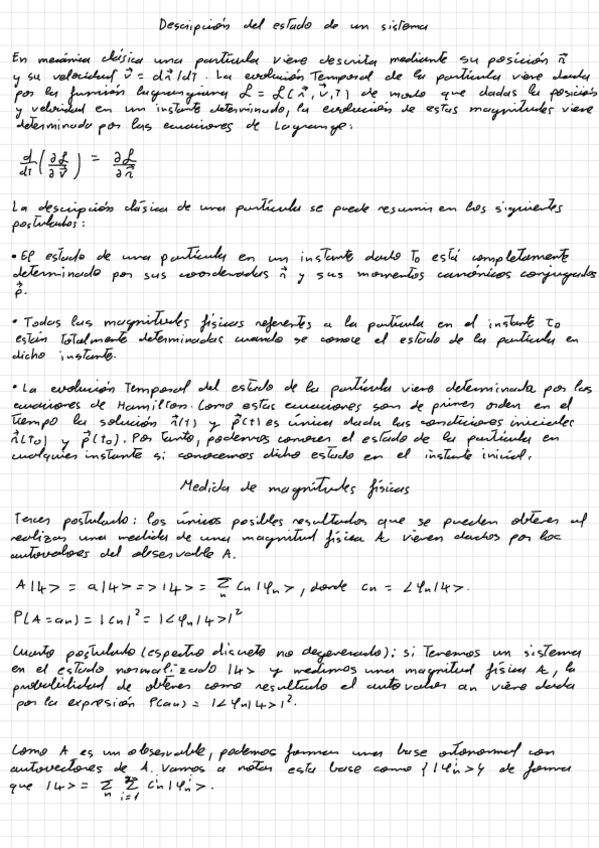 Descripción del estado de un sistema
En mecánica clásica una partícula viene descrita mediante su posición r⃗
y su velocidad v⃗ = dr⃗/dt. La evolución Temporal de la partícula viene dada
por la función lagrangiana ℒ = ℒ(r⃗, v⃗, T) de modo que dadas la posición
y velocidad en un instante determinado, la evolución de estas magnitudes viene
determinada por las ecuaciones de Lagrange:
d/dt (∂ℒ/∂v⃗) = ∂ℒ/∂r⃗
La descripción clásica de una partícula se puede resumir en los siguientes
postulados:
• El estado de una partícula en un instante dado To está completamente
determinado por sus coordenadas r⃗ y sus momentos canónicos conjugados
p⃗.
• Todas las magnitudes físicas referentes a la partícula en el instante to
están Totalmente determinadas cuando se conoce el estado de la partícula en
dicho instante.
• La evolución Temporal del estado de la partícula viene determinada por las
ecuaciones de Hamilton. Como estas ecuaciones son de primer orden en el
tiempo la solución r⃗(t) y p⃗(t) es única dada las condiciones iniciales
r⃗(To) y p⃗(to). Por Tanto, podemos conocer el estado de la partícula en
cualquier instante si conocemos dicho estado en el instante inicial.
Medida de magnitudes físicas
Tercer postulado: los únicos posibles resultados que se pueden obtener al
realizar una medida de una magnitud física A vienen dados por los
autovalores del observable A.
A|ψ> = a|ψ> => |ψ> = Σn Cn|φn>, donde cn = <φn|ψ>.
P(A=an) = |cn|² = |<φn|ψ>|²
Cuarto postulado (espectro discreto no degenerado): si Tenemos un sistema
en el estado normalizado |ψ> y medimos una magnitud física A, la
probabilidad de obtener como resultado el autovalor an viene dada
por la expresión P(an) = |<φn|ψ>|².
Como A es un observable, podemos formar una base ortonormal con
autovectores de A. Vamos a notar esta base como {|φⁱn>} de forma
que |ψ> = Σn Σi=1 cⁱn|φⁱn>.